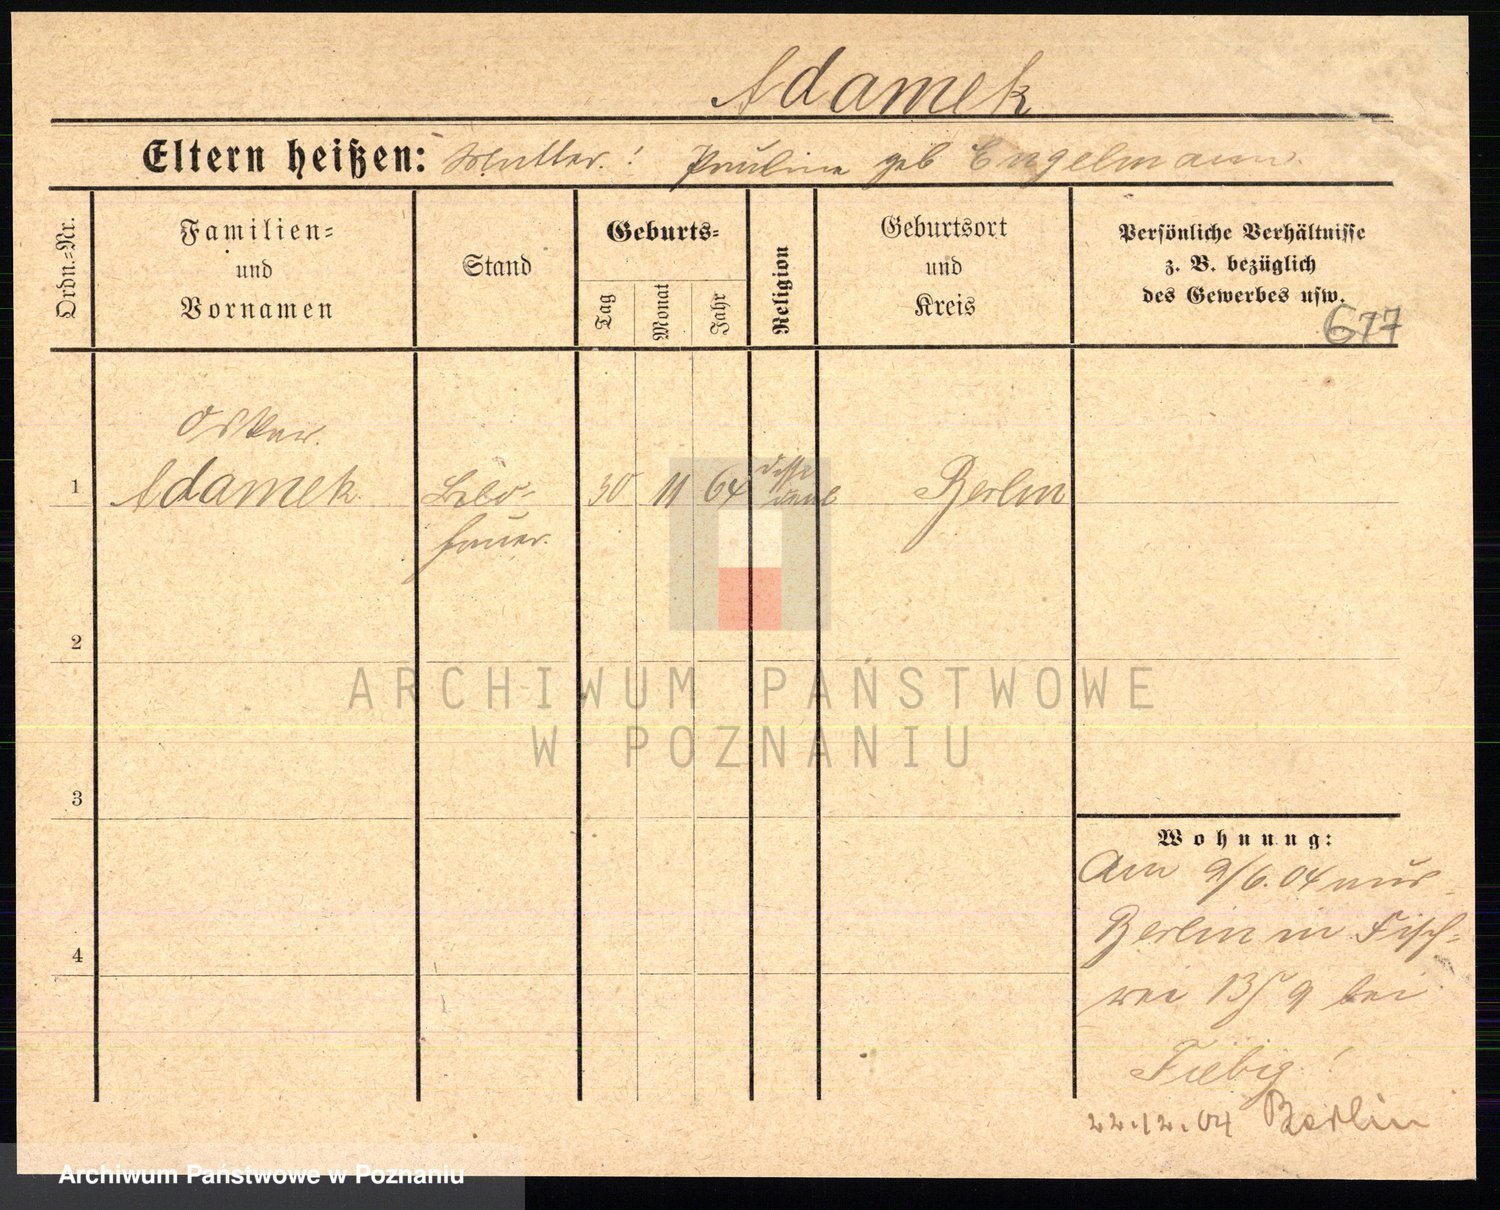 Adamek
Eltern heißen: Mutter! Pauline geb Engelmann.
Ordn.-Nr.
Familien-
und
Vornamen
Stand
Geburts-
Tag
Monat
Jahr
Religion
Geburtsort
und
Kreis
Persönliche Verhältnisse
z. B. bezüglich
des Gewerbes usw.
677
Oskar
1 Adamek Bild- 30 11 64 Berlin
hauer.
2
ARCHIWUM PAŃSTWOWE
W POZNANIU
3
Wohnung:
Am 2/6.04 aus
Berlin in Fisch-
4
rei 13 9 bei
Fiebig!
22.12.04 Berlin
Archiwum Państwowe w Poznaniu